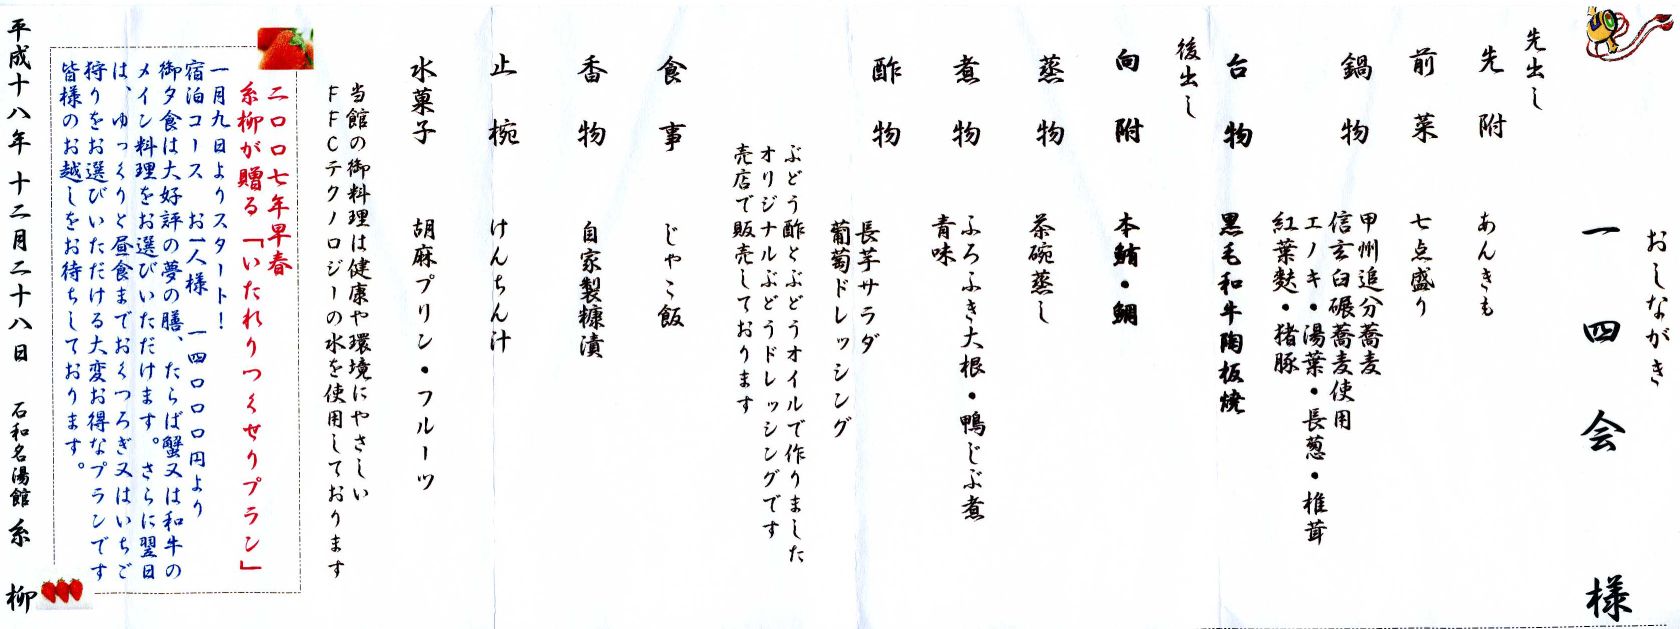 おしながき
一四会 様
先出し
先附 あんきも
前菜 七点盛り
鍋物 甲州追分蕎麦
信玄臼碾蕎麦使用
エノキ・湯葉・長葱・椎茸
紅葉麩・猪豚
台物 黒毛和牛陶板焼
後出し
向附 本鮪・鯛
蒸物 茶碗蒸し
煮物 ふろふき大根・鴨じぶ煮
青味
酢物 長芋サラダ
葡萄ドレッシング
ぶどう酢とぶどうオイルで作りました
オリジナルぶどうドレッシングです
売店で販売しております
食事 じゃこ飯
香物 自家製糠漬
止椀 けんちん汁
水菓子 胡麻プリン・フルーツ
当館の御料理は健康や環境にやさしい
FFCテクノロジーの水を使用しております
二〇〇七年早春
糸柳が贈る「いたれりつくせりプラン」
一月九日よりスタート!
宿泊コース お一人様 一四〇〇〇円より
御夕食は大好評の夢の膳、たらば蟹又は和牛の
メイン料理をお選びいただけます。さらに翌日
は、ゆっくりと昼食までおくつろぎ又はいちご
狩りをお選びいただける大変お得なプランです
皆様のお越しをお待ちしております。
平成十八年十二月二十八日 石和名湯館 糸柳